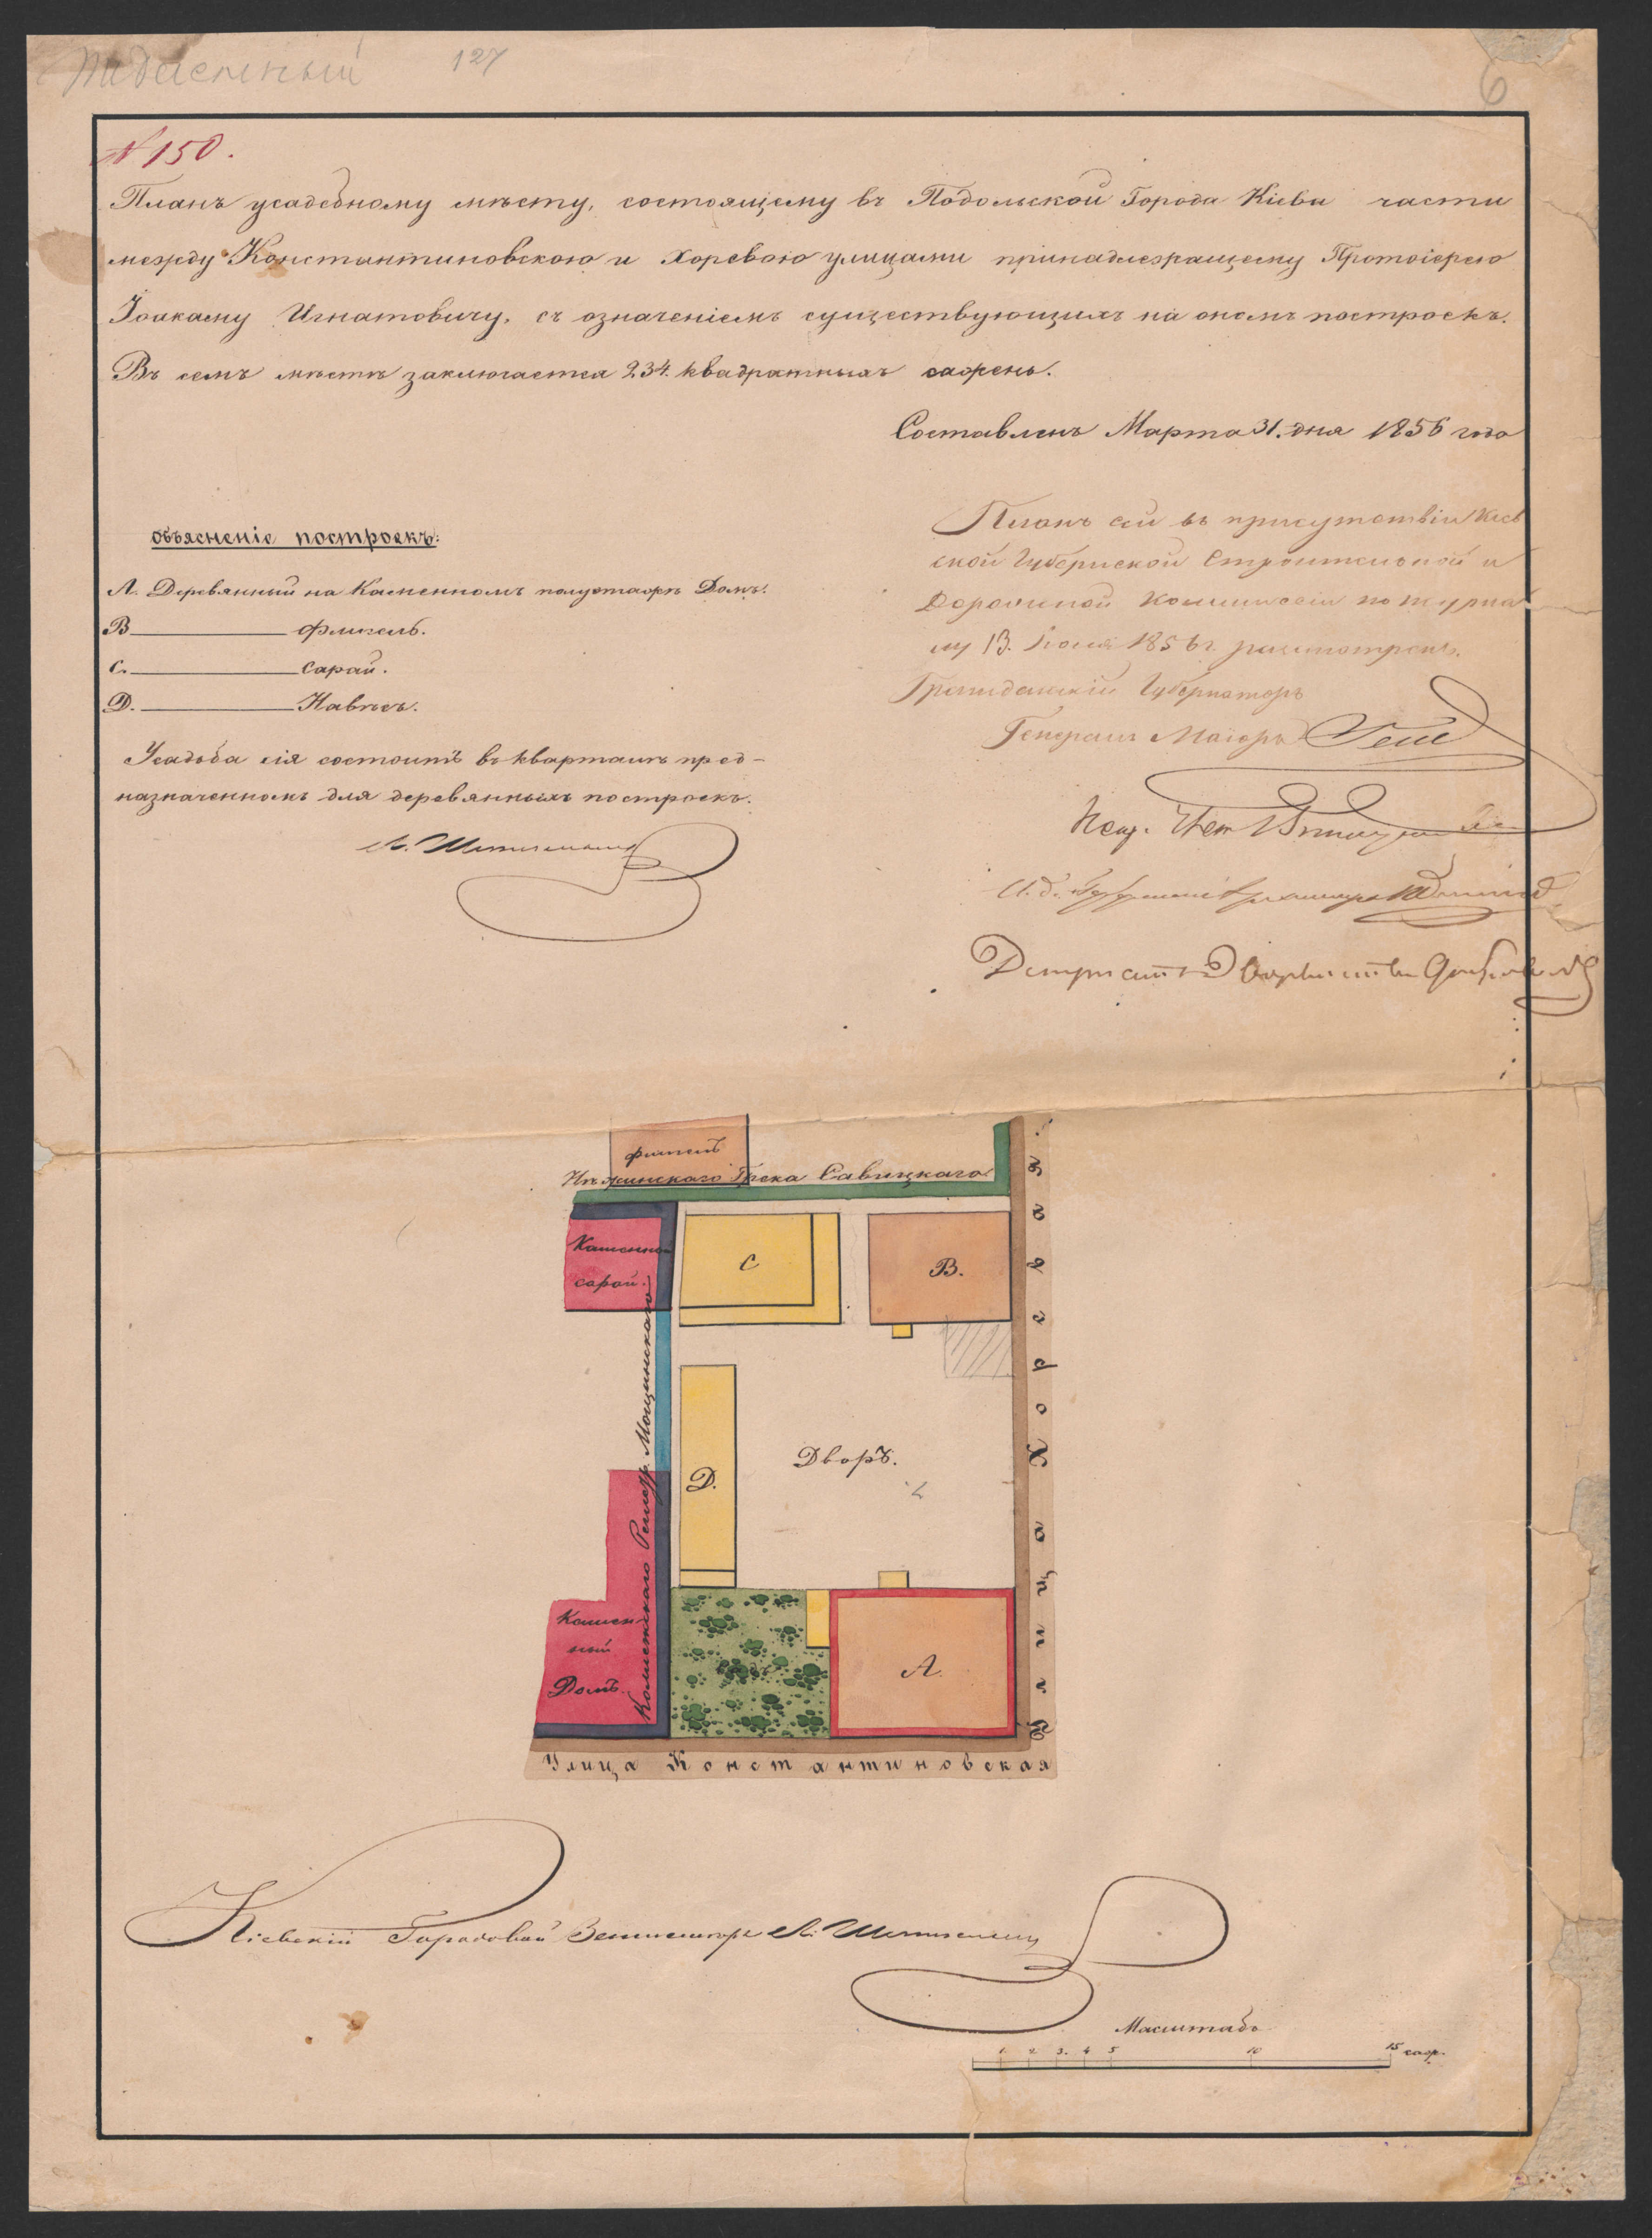 127
6
№ 150.
Планъ усадебному мѣсту, состоящему въ Подольской Города Кіева части
между Константиновскою и Хоревою улицами принадлежащему Протоіерею
Іоакиму Игнатовичу, съ означеніемъ существующихъ на ономъ построекъ.
Въ семъ мѣстѣ заключается 234. квадратныхъ сажень.
Составленъ Марта 31. дня 1856 года
Объясненіе построекъ:
А. Деревянный на Каменномъ полуэтажѣ Домъ.
В флигель.
С. Сарай.
D. Навѣсъ.
Усадьба сія состоитъ въ кварталѣ пред-
назначенномъ для деревянныхъ построекъ.
Планъ сей въ присутствіи Кіев
ской Губернской Строительной и
Дорожной Коммиссіи по журна
лу 13. Іюля 1856 г. разсмотренъ.
Гражданскій Губернаторъ
Генералъ Маіоръ Гессе
Депутатъ Дворянства
флигель
Нѣжинскаго Грека Савицкаго
Каменной
сарай.
С
В.
D.
Дворъ.
Каменный
Домъ.
А.
Мощинскаго
Улица Хоревая
Улица Константиновская
Кіевскій Городовой Землемѣръ
Масштабъ
1. 2 3. 4 5 10 15 саж.